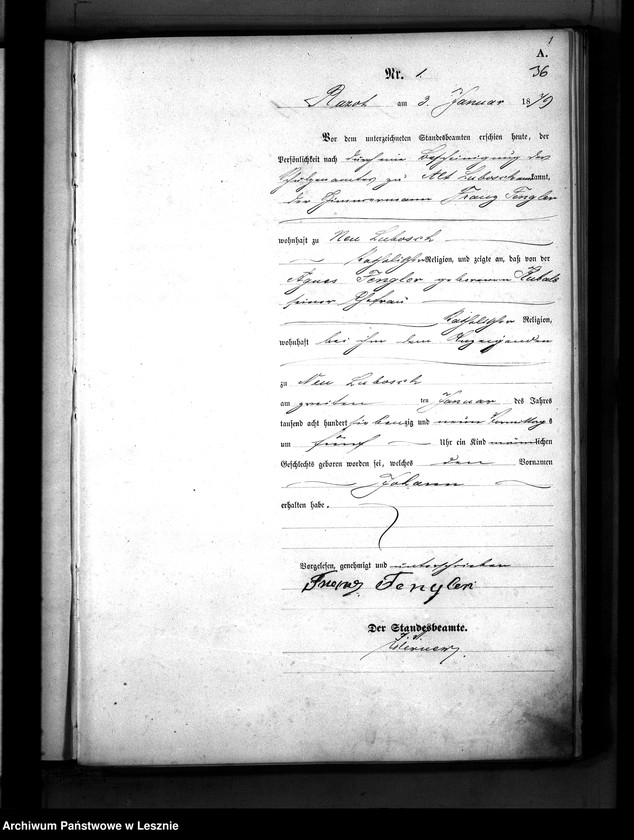 1
A.
Nr. 1.
36
Razot am 3. Januar 1879
Vor dem unterzeichneten Standesbeamten erschien heute, der
Persönlichkeit nach durch eine Bescheinigung des
Schulzenamtes zu Alt Lubosch anerkannt,
der Zimmermann Franz Fengler
wohnhaft zu Neu Lubosch
katholischer Religion, und zeigte an, daß von der
Agnes Fengler geborenen
seiner Ehefrau
katholischer Religion,
wohnhaft bei ihm dem Anzeigenden
zu Neu Lubosch
am zweiten ten Januar des Jahres
tausend acht hundert siebenzig und neun Vormittags
um fünf Uhr ein Kind männlichen
Geschlechts geboren worden sei, welches den Vornamen
Johann
erhalten habe.
Vorgelesen, genehmigt und unterschrieben
Franz Fengler
Der Standesbeamte.
Archiwum Państwowe w Lesznie